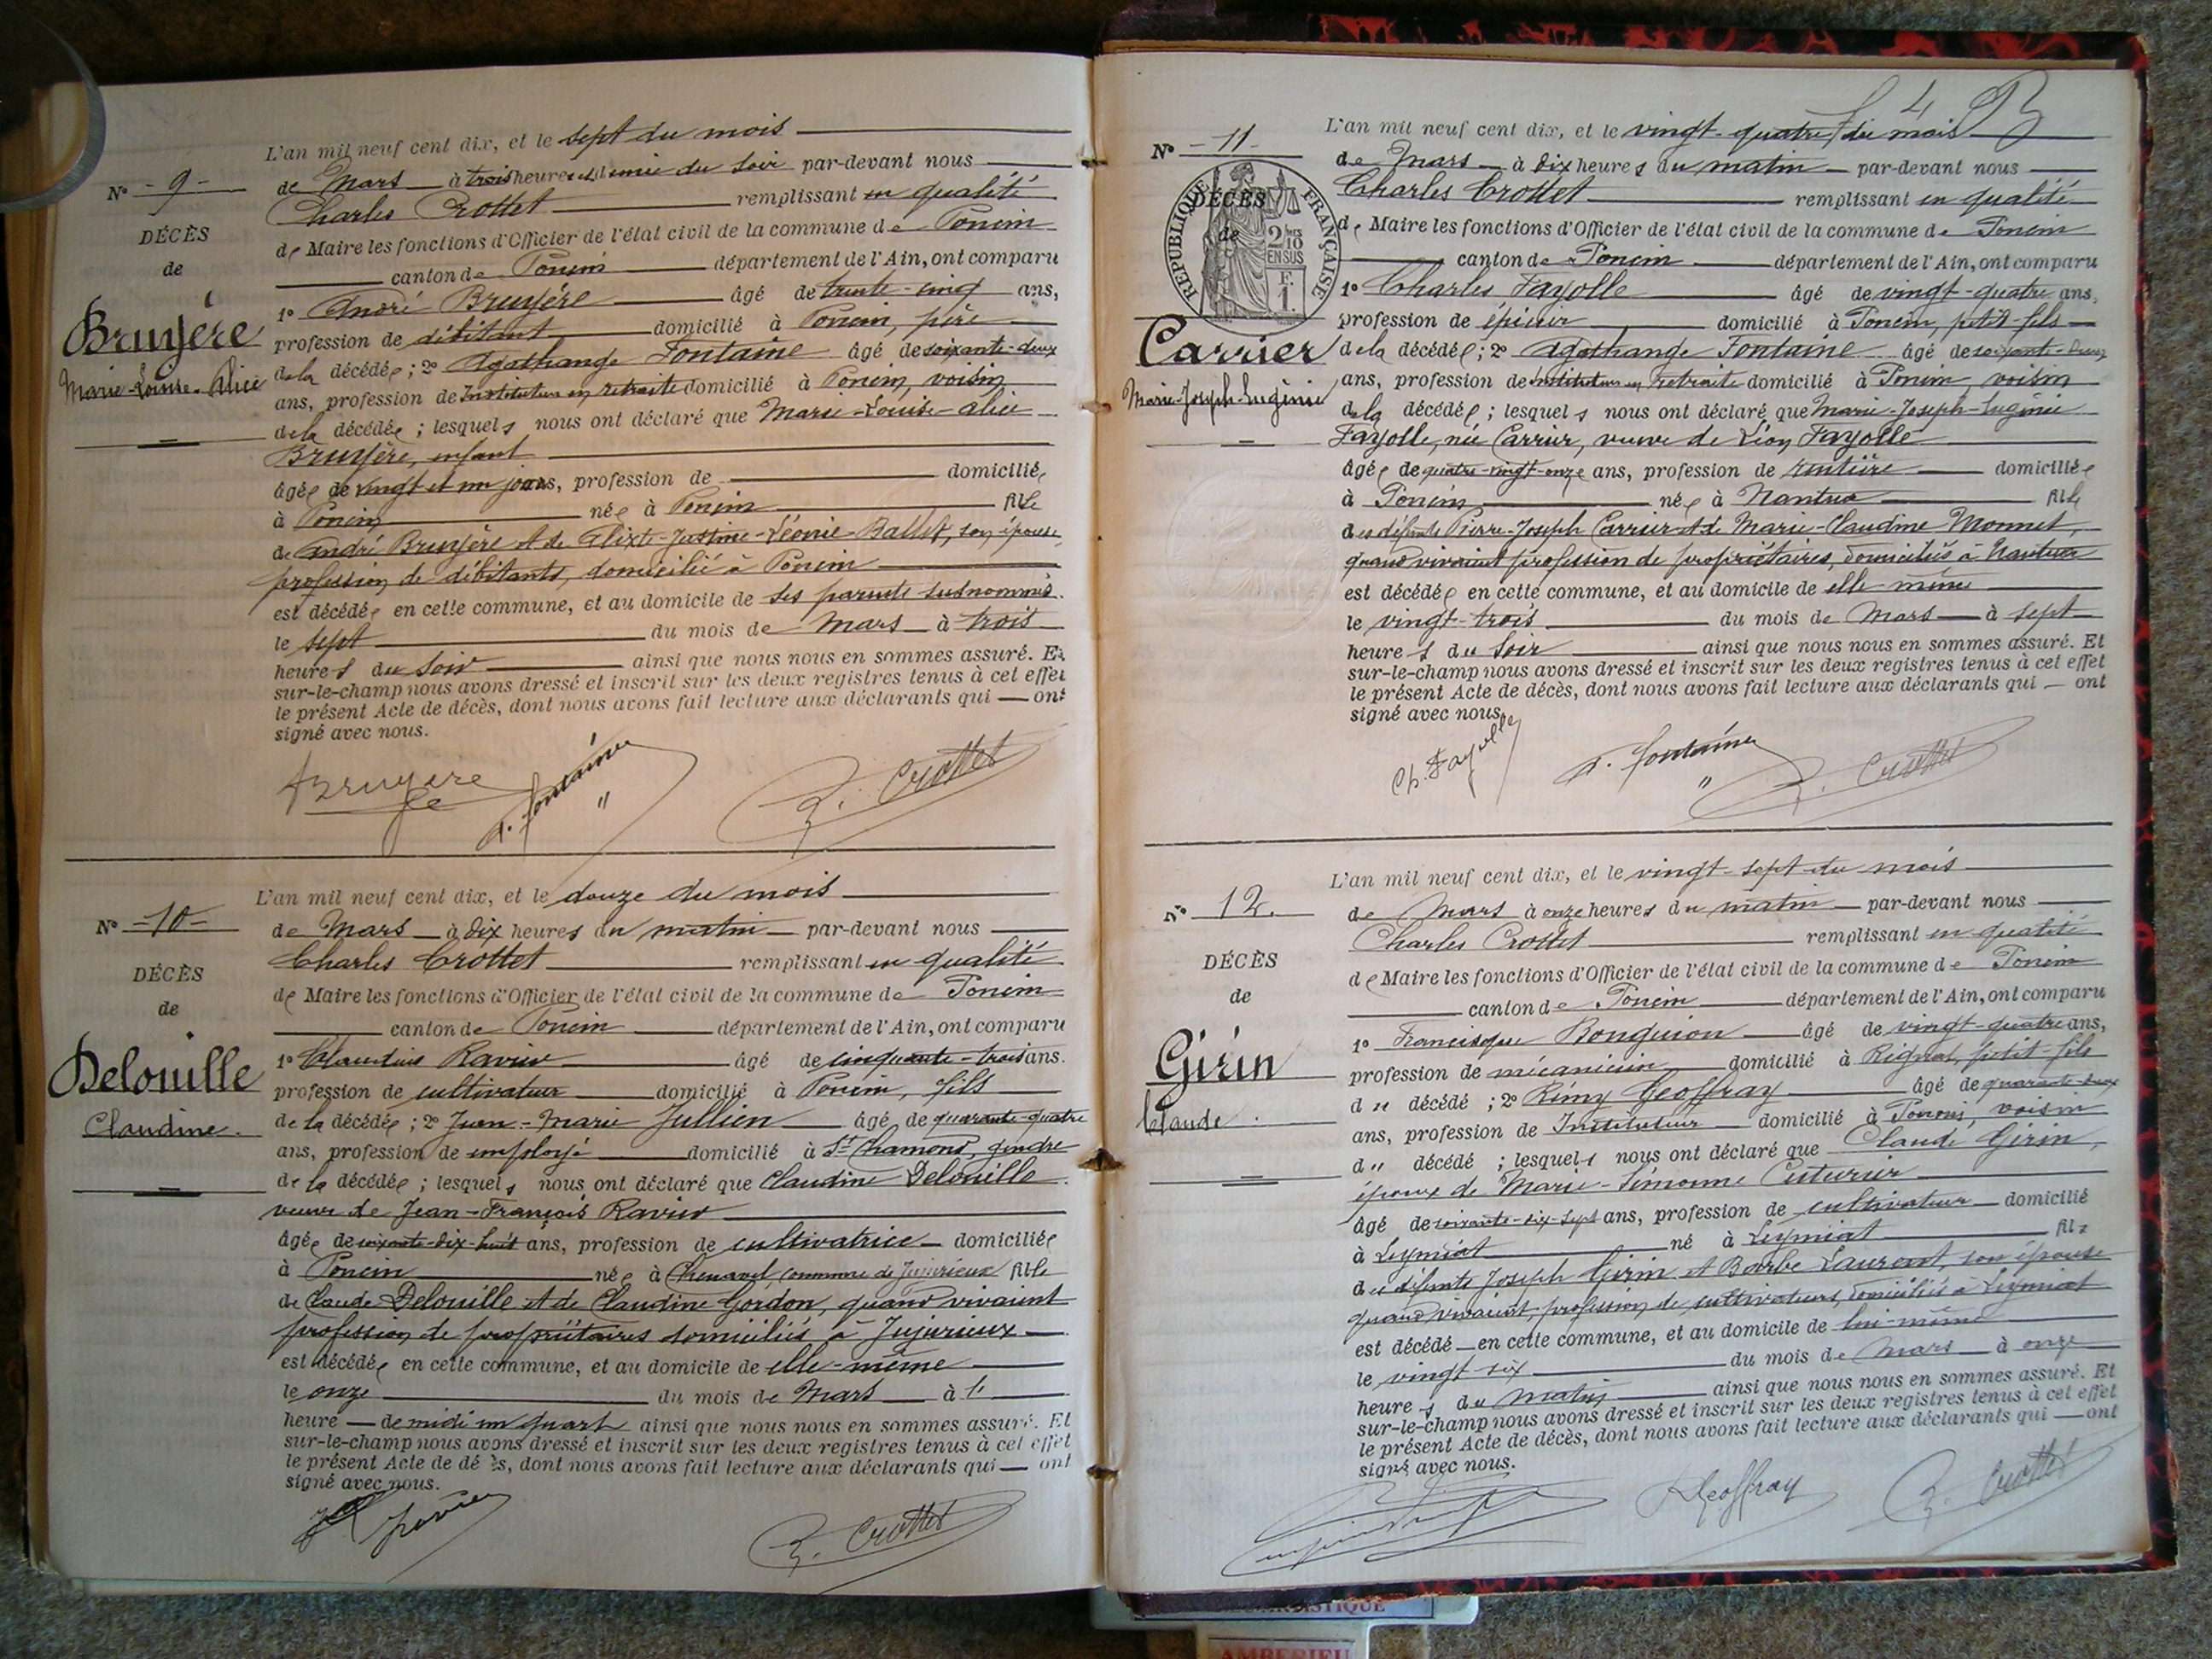 L'an mil neuf cent dix, et le sept du mois
N° - 9 -
de Mars à trois heures et demie du soir par-devant nous
Charles Crottet remplissant en qualité
DÉCÈS
de Maire les fonctions d'Officier de l'état civil de la commune de Poncin
de
canton de Poncin département de l'Ain, ont comparu
1° André Bruyère âgé de trente-cinq ans,
Bruyère
profession de débitant domicilié à Poncin, père
Marie-Louise-Alice
de la décédée ; 2° Agathange Fontaine âgé de soixante-deux
ans, profession de Instituteur en retraite domicilié à Poncin, voisin
de la décédée ; lesquels nous ont déclaré que Marie-Louise-Alice
Bruyère, enfant
âgée de vingt et un jours, profession de domiciliée
à Poncin née à Poncin fille
de André Bruyère et de Alixte-Justine-Léonie-Ballet, son épouse,
profession de débitants, domicilié à Poncin
est décédée en cette commune, et au domicile de ses parents susnommés.
le sept du mois de Mars à trois
heures du soir ainsi que nous nous en sommes assuré. Et
sur-le-champ nous avons dressé et inscrit sur les deux registres tenus à cet effet
le présent Acte de décès, dont nous avons fait lecture aux déclarants qui — ont
signé avec nous.
Bruyere
A. Fontaine
Crottet
L'an mil neuf cent dix, et le douze du mois
N° - 10 -
de Mars à dix heures du matin par-devant nous
Charles Crottet remplissant en qualité
DÉCÈS
de Maire les fonctions d'Officier de l'état civil de la commune de Poncin
de
canton de Poncin département de l'Ain, ont comparu
1° Claudius Ravier âgé de cinquante-trois ans.
Delouille
profession de cultivateur domicilié à Poncin, fils
Claudine.
de la décédée ; 2° Jean-Marie Jullien âgé de quarante-quatre
ans, profession de employé domicilié à St Chamond, gendre
de la décédée ; lesquels nous ont déclaré que Claudine Delouille
veuve de Jean-François Ravier
âgée de soixante-dix-huit ans, profession de cultivatrice domiciliée
à Poncin née à Chenavel, commune de Jujurieux fille
de Claude Delouille et de Claudine Gordon, quand vivaient
profession de propriétaires domiciliés à Jujurieux
est décédée en cette commune, et au domicile de elle-même
le onze du mois de Mars à l'
heure — de midi un quart ainsi que nous nous en sommes assuré. Et
sur-le-champ nous avons dressé et inscrit sur les deux registres tenus à cet effet
le présent Acte de décès, dont nous avons fait lecture aux déclarants qui — ont
signé avec nous.
Crottet
4
L'an mil neuf cent dix, et le vingt-quatre du mois
N° - 11 -
de Mars à dix heures du matin par-devant nous
RÉPUBLIQUE FRANÇAISE
2/10 EN SUS
F. 1.
DÉCÈS
de
Charles Crottet remplissant en qualité
de Maire les fonctions d'Officier de l'état civil de la commune de Poncin
canton de Poncin département de l'Ain, ont comparu
1° Charles Fayolle âgé de vingt-quatre ans,
profession de épicier domicilié à Poncin, petit-fils
Carrier
de la décédée ; 2° Agathange Fontaine âgé de soixante-deux
Marie-Joseph-Eugénie
ans, profession de instituteur en retraite domicilié à Poncin, voisin
de la décédée ; lesquels nous ont déclaré que Marie-Joseph-Eugénie
Fayolle, née Carrier, veuve de Léon Fayolle
âgée de quatre-vingt-onze ans, profession de rentière domiciliée
à Poncin née à Nantua fille
des défunts Pierre-Joseph Carrier et de Marie-Claudine Monnet,
quand vivaient profession de propriétaires, domiciliés à Nantua
est décédée en cette commune, et au domicile de elle-même
le vingt-trois du mois de Mars à sept
heures du soir ainsi que nous nous en sommes assuré. Et
sur-le-champ nous avons dressé et inscrit sur les deux registres tenus à cet effet
le présent Acte de décès, dont nous avons fait lecture aux déclarants qui — ont
signé avec nous.
Ch. Fayolle
A. Fontaine
Crottet
L'an mil neuf cent dix, et le vingt-sept du mois
N° 12.
de Mars à onze heures du matin par-devant nous
Charles Crottet remplissant en qualité
DÉCÈS
de Maire les fonctions d'Officier de l'état civil de la commune de Poncin
de
canton de Poncin département de l'Ain, ont comparu
1° Francisque Bonguion âgé de vingt-quatre ans,
Girin
profession de mécanicien domicilié à Rignat, petit-fils
Claude.
du décédé ; 2° Rémy Geoffray âgé de quarante-deux
ans, profession de Instituteur domicilié à Poncin, voisin
du décédé ; lesquels nous ont déclaré que Claude Girin,
époux de Marie-Simonne Cuturier
âgé de soixante-dix-sept ans, profession de cultivateur domicilié
à Leymiat né à Leymiat fils
des défunts Joseph Girin et Barbe Laurent, son épouse
quand vivaient, profession de cultivateurs, domiciliés à Leymiat
est décédé — en cette commune, et au domicile de lui-même
le vingt-six du mois de Mars à onze
heures du matin ainsi que nous nous en sommes assuré. Et
sur-le-champ nous avons dressé et inscrit sur les deux registres tenus à cet effet
le présent Acte de décès, dont nous avons fait lecture aux déclarants qui — ont
signé avec nous.
Geoffray
Crottet
AMBERIEU